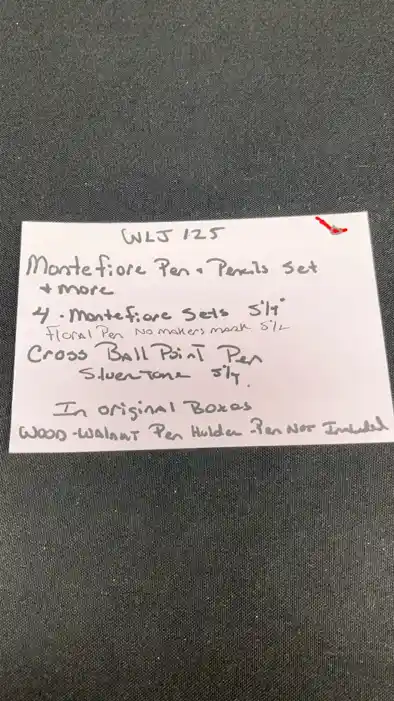 WLJ 125
Montefiore Pen + Pencils Set
+ more
4 - Montefiore Sets 5 1/4"
Floral Pen No makers mark 5 1/2
Cross Ball Point Pen
Silver Tone 5 1/4
In original Boxes
WOOD - Walnut Pen Holder - Pen Not Included